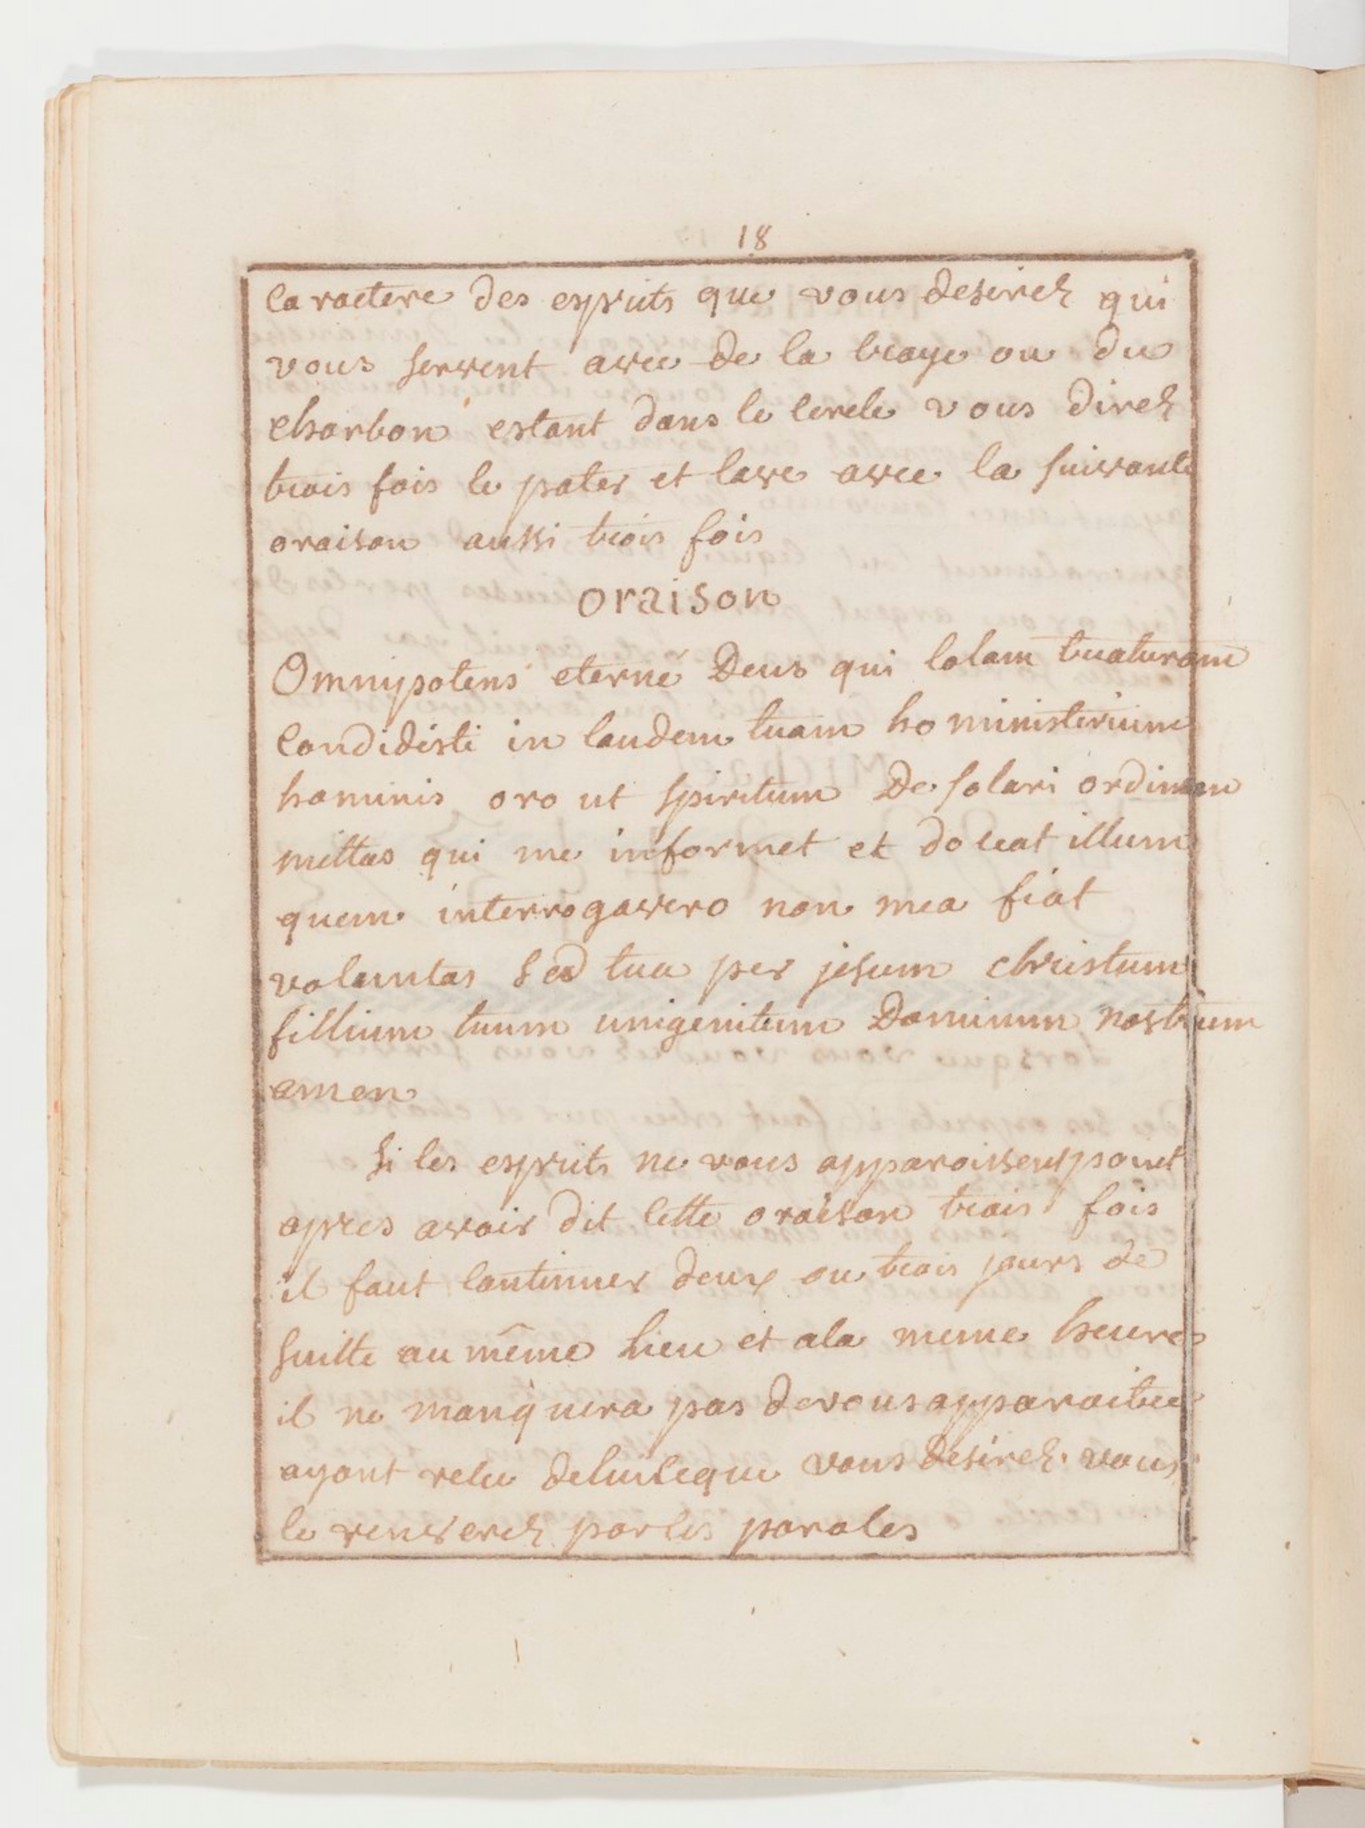 18
caractere des esprits que vous desirez qui
vous servent avec de la craye ou du
charbon estant dans le cercle vous direz
trois fois le pater et lave avec la suivante
oraison aussi trois fois
oraison
Omnypotens eterne Deus qui totam creaturam
condidisti in laudem tuam ho ministerium
hominis oro ut spiritum De solari ordinem
mittas qui me informet et doceat illum
quem interrogavero non mea fiat
voluntas sed tua per jesum christum
fillium tuum unigenitum Dominum nostrum
amen
si les esprits ne vous apparoissent point
apres avoir dit cette oraison trois fois
il faut continuer deux ou trois jours de
suitte au même lieu et ala meme heure
il ne manquera pas devous apparaitre
ayant receu deluiceque vous desirez vous
le renverez par les paroles